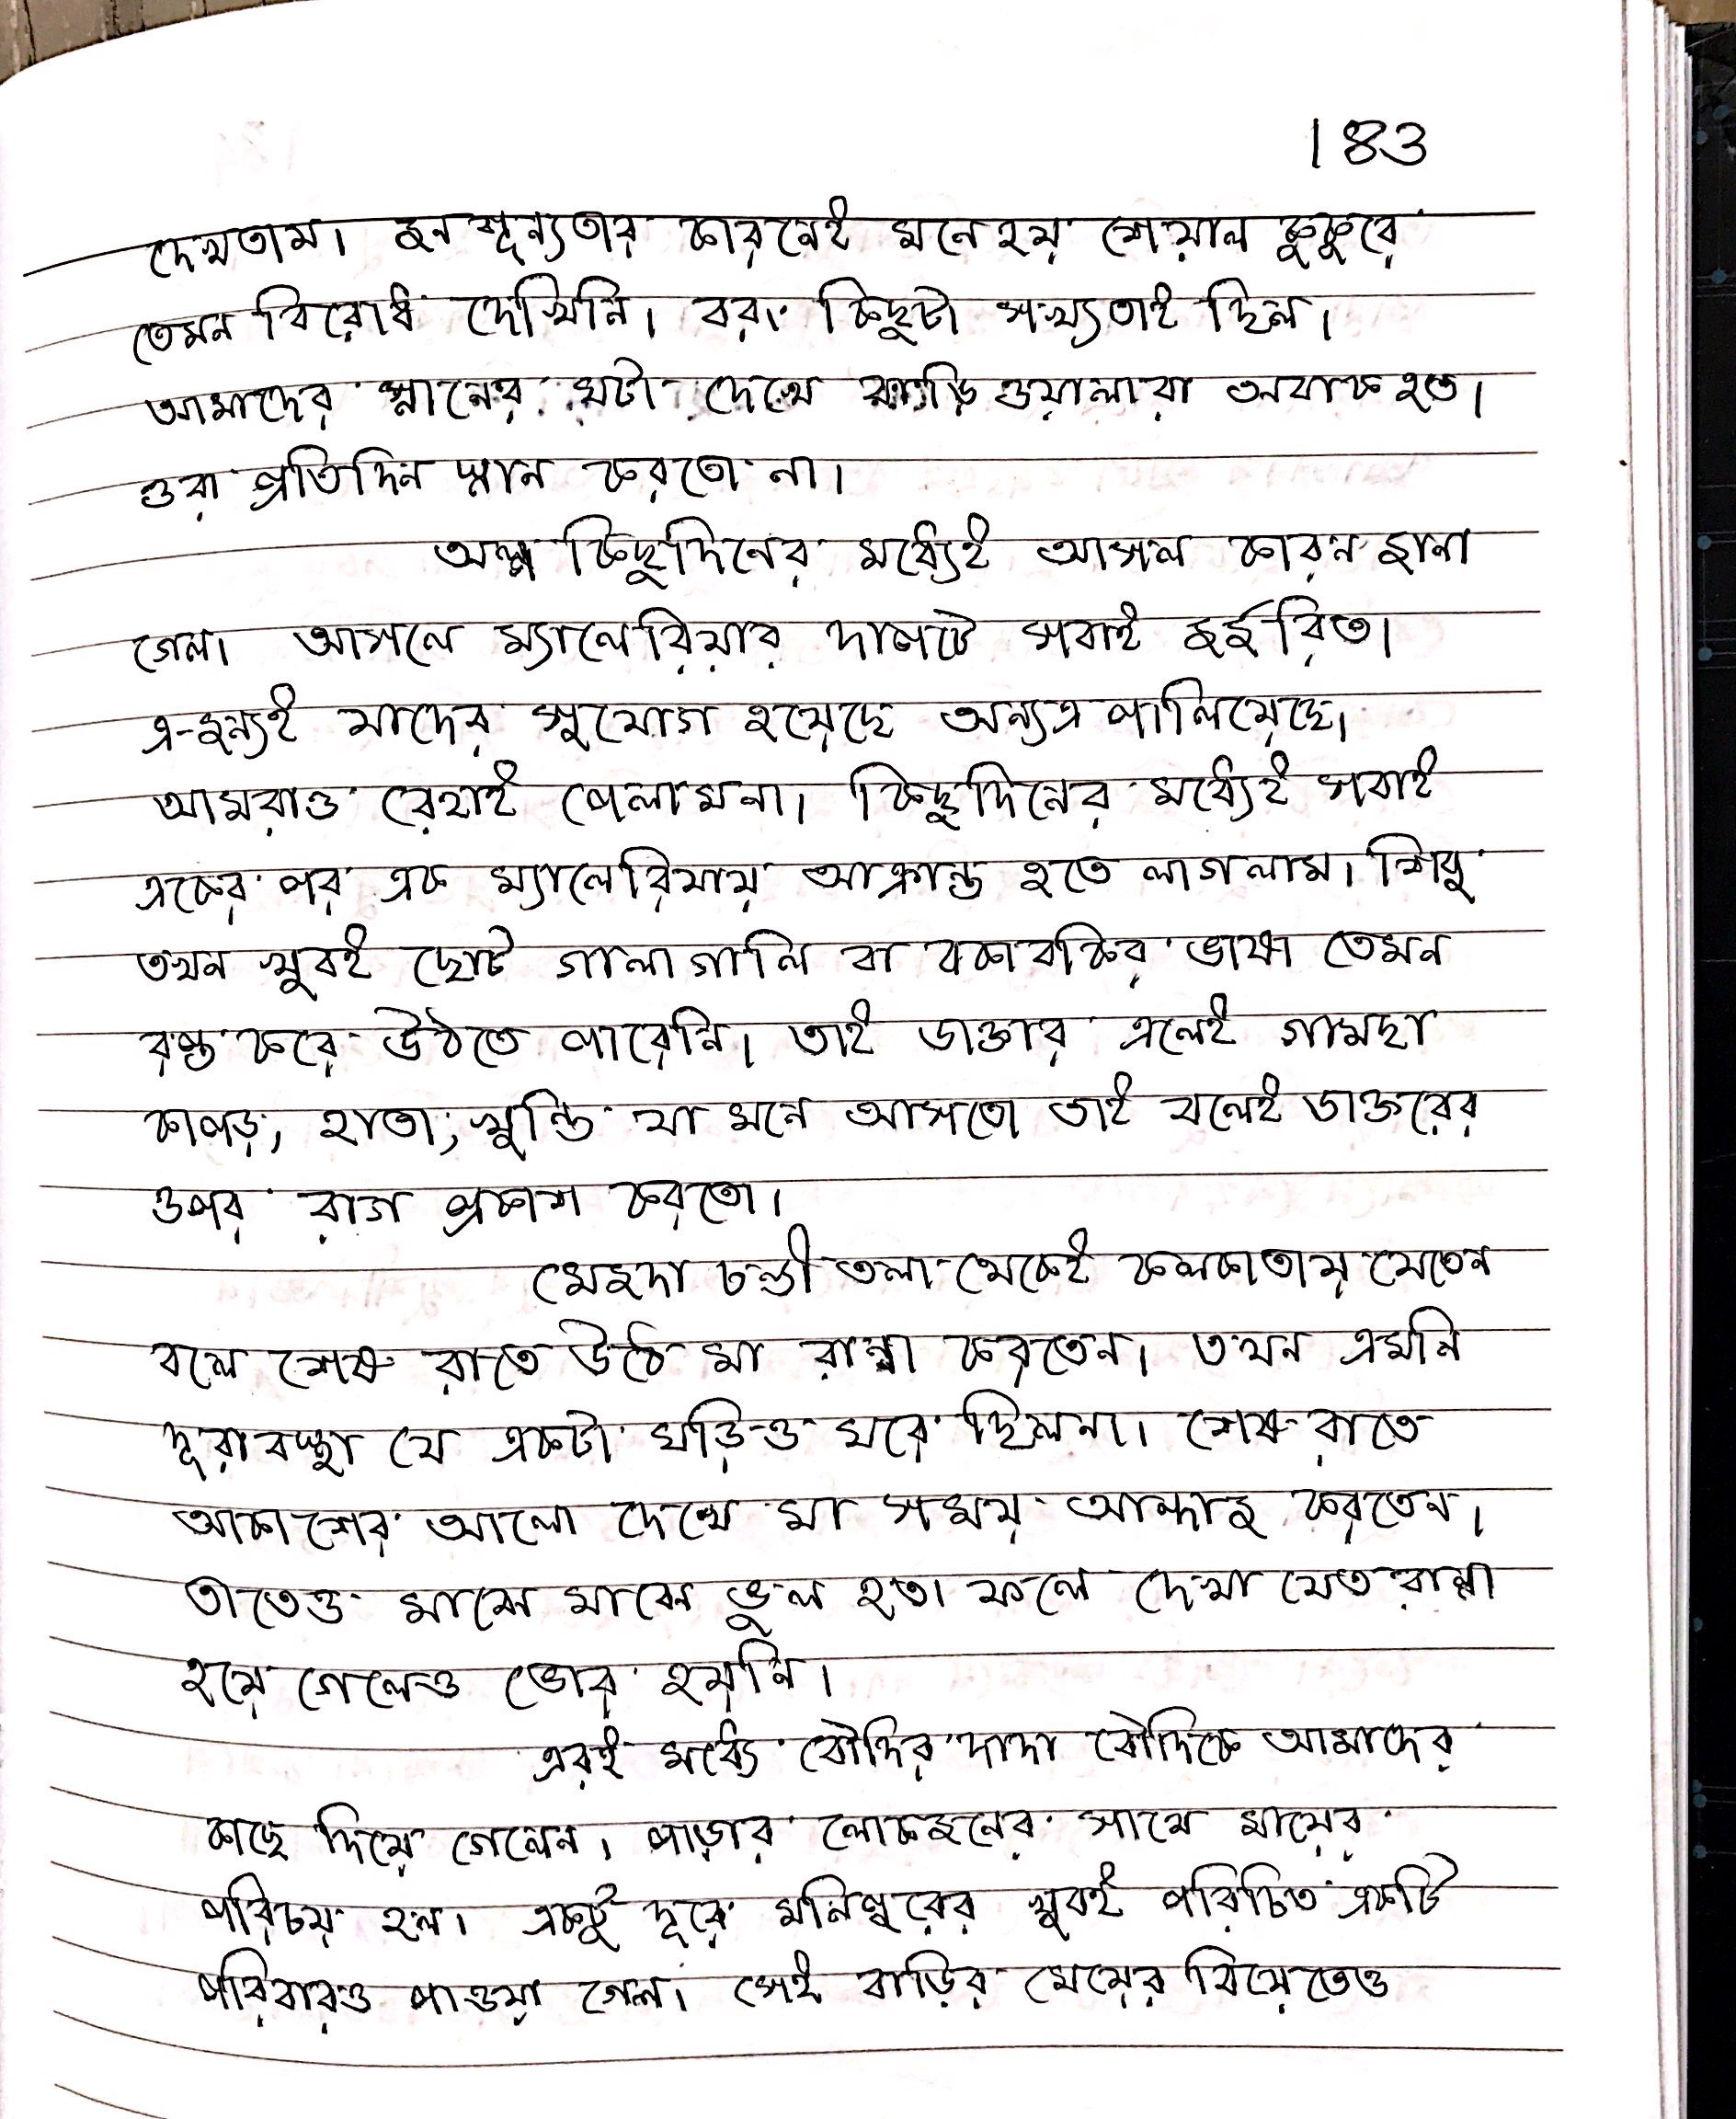 183
দেখতাম। জন শূন্যতার কারনেই মনে হয় শেয়াল কুকুরে
তেমন বিরোধ দেখিনি। বরং কিছুটা সখ্যতাই ছিল।
আমাদের স্নানের ঘটা দেখে বাড়িওয়ালারা অবাক হত।
ওরা প্রতিদিন স্নান করতো না।
অল্প কিছুদিনের মধ্যেই আসল কারন জানা
গেল। আসলে ম্যালেরিয়ার দাপটে সবাই জর্জরিত।
এ-জন্যই যাদের সুযোগ হয়েছে অন্যত্র পালিয়েছে।
আমরাও রেহাই পেলামনা। কিছুদিনের মধ্যেই সবাই
একের পর এক ম্যালেরিয়ায় আক্রান্ত হতে লাগলাম। শিবু
তখন খুবই ছোট গালাগালি বা বকাবকির ভাষা তেমন
রপ্ত করে উঠতে পারেনি। তাই ডাক্তার এলেই গামছা
কাপড়, হাতা, খুন্তি যা মনে আসতো তাই বলেই ডাক্তরের
ওপর রাগ প্রকাশ করতো।
মেজদা চন্ডীতলা থেকেই কলকাতায় যেতেন
বলে শেষ রাতে উঠে মা রান্না করতেন। তখন এমনি
দূরাবস্থা যে একটা ঘড়িও ঘরে ছিলনা। শেষ রাতে
আকাশের আলো দেখে মা সময় আন্দাজ করতেন।
তাতেও মাঝে মাঝে ভুল হত। ফলে দেখা যেত রান্না
হয়ে গেলেও ভোর হয়নি।
এরই মধ্যে বৌদির দাদা বৌদিকে আমাদের
কাছে দিয়ে গেলেন। পাড়ার লোকজনের সাথে মায়ের
পরিচয় হল। একটু দূরে মনিপুরের খুবই পরিচিত একটি
পরিবারও পাওয়া গেল। সেই বাড়ির মেয়ের বিয়েতেও